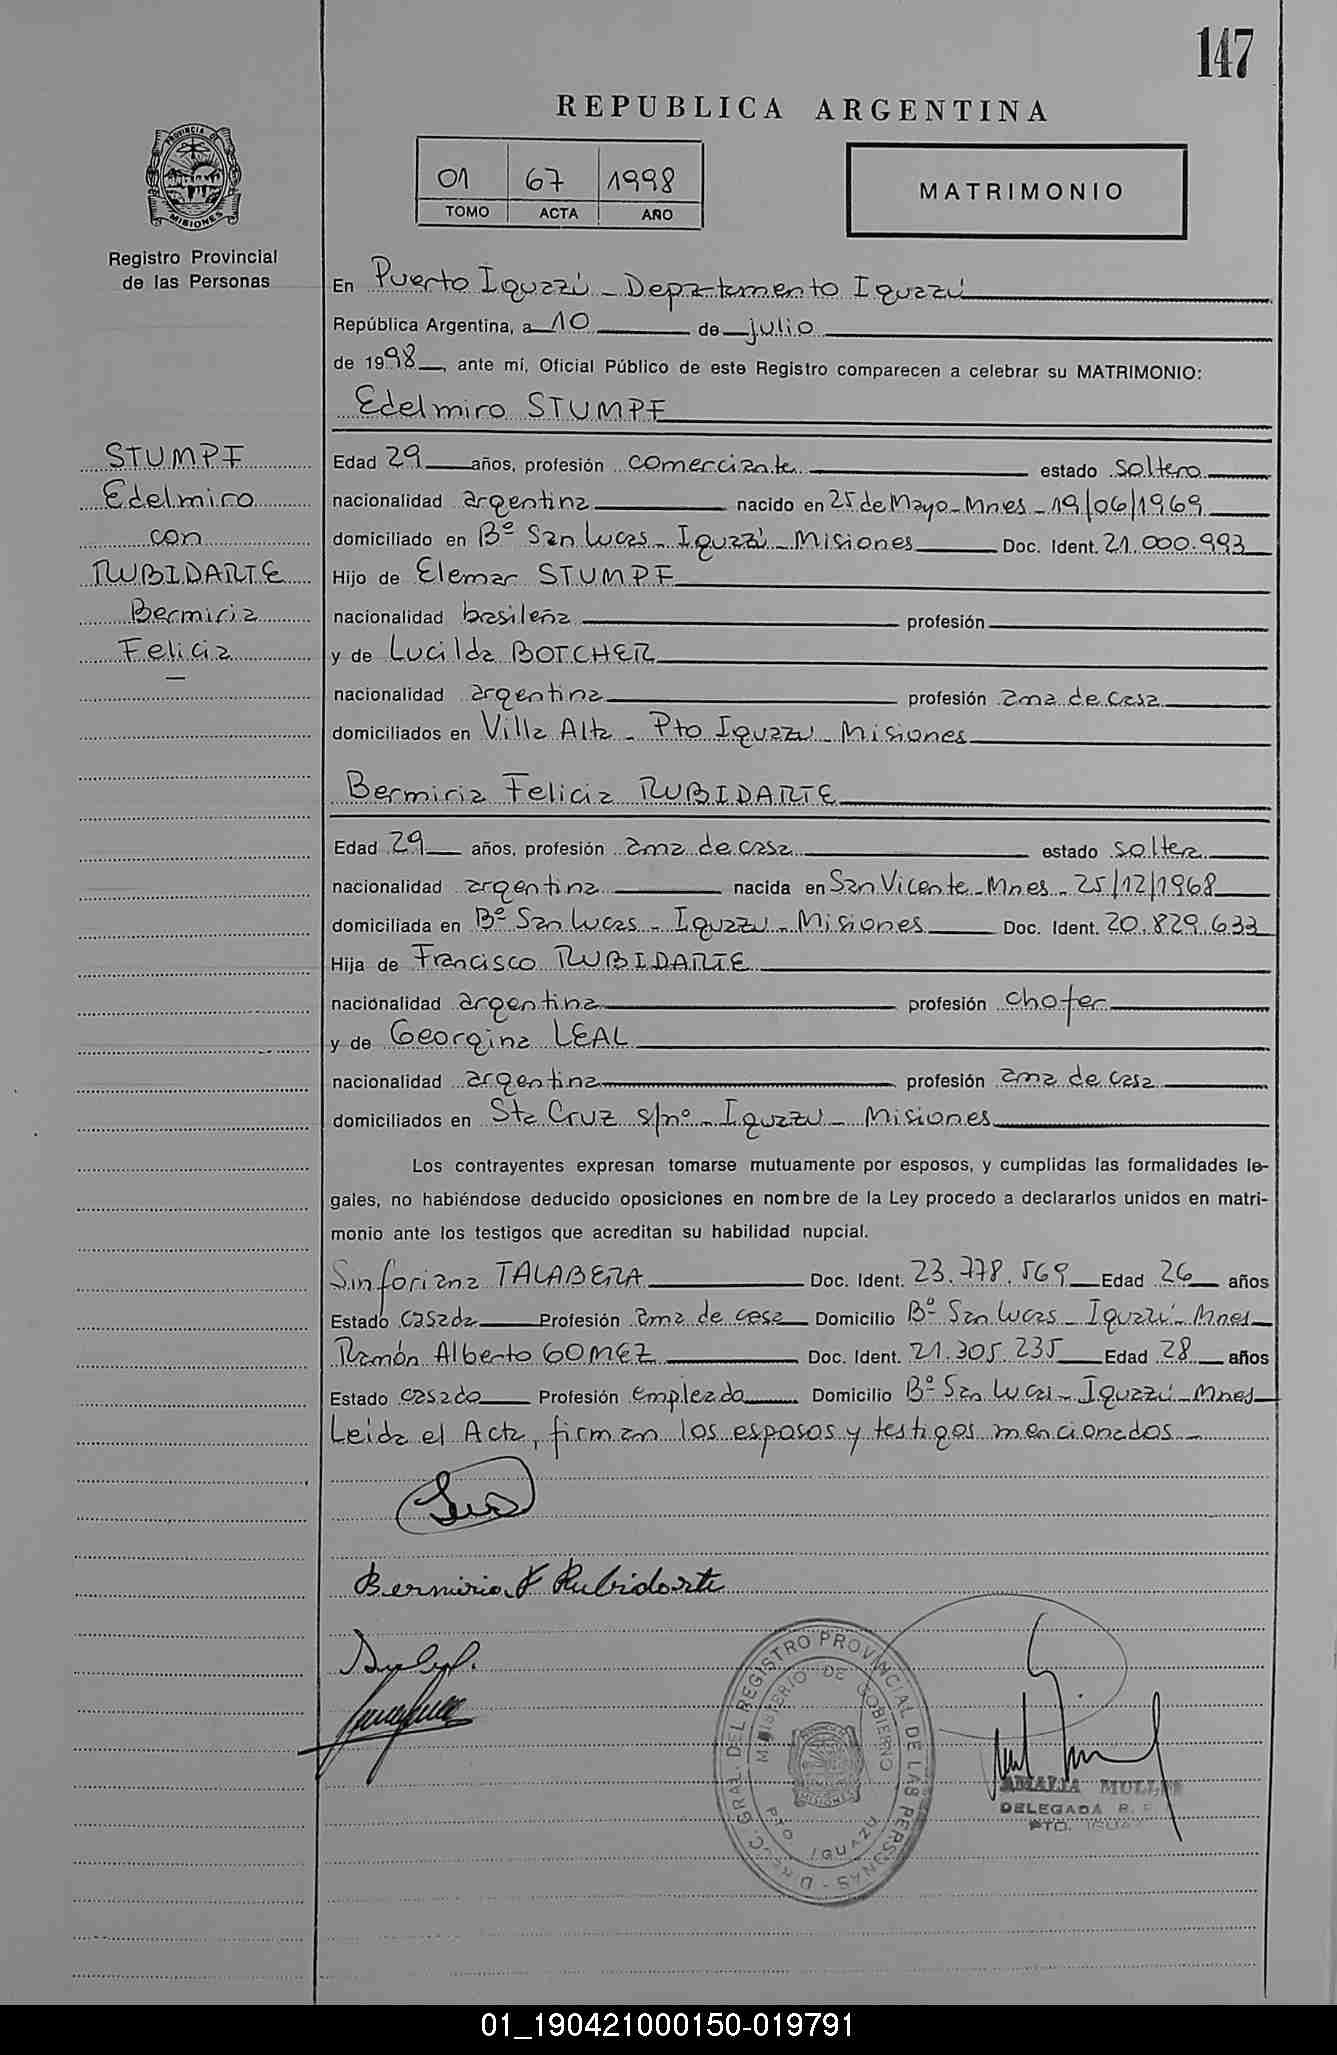 147
REPUBLICA ARGENTINA
PROVINCIA DE
MISIONES
Registro Provincial
de las Personas
01 67 1998
TOMO ACTA AÑO
MATRIMONIO
En Puerto Iguazú - Departamento Iguazú
República Argentina, a 10 de julio
de 1998, ante mí, Oficial Público de este Registro comparecen a celebrar su MATRIMONIO:
Edelmiro STUMPF
STUMPF
Edelmiro
con
RUBIDARTE
Bermiria
Felicia
Edad 29 años, profesión comerciante estado soltero
nacionalidad argentina nacido en 25 de Mayo - Mnes - 19/06/1969
domiciliado en Bº San Lucas - Iguazú - Misiones Doc. Ident. 21.000.993
Hijo de Elemar STUMPF
nacionalidad brasileña profesión
y de Lucilda BOTCHER
nacionalidad argentina profesión ama de casa
domiciliados en Villa Alta - Pto Iguazu - Misiones
Bermiria Felicia RUBIDARTE
Edad 29 años, profesión ama de casa estado soltera
nacionalidad argentina nacida en San Vicente - Mnes - 25/12/1968
domiciliada en Bº San Lucas - Iguazu - Misiones Doc. Ident. 20.829.633
Hija de Francisco RUBIDARTE
nacionalidad argentina profesión chofer
y de Georgina LEAL
nacionalidad argentina profesión ama de casa
domiciliados en Sta Cruz s/nº - Iguazu - Misiones
Los contrayentes expresan tomarse mutuamente por esposos, y cumplidas las formalidades le-
gales, no habiéndose deducido oposiciones en nombre de la Ley procedo a declararlos unidos en matri-
monio ante los testigos que acreditan su habilidad nupcial.
Sinforiana TALABERA Doc. Ident. 23.778.569 Edad 26 años
Estado casada Profesión ama de casa Domicilio Bº San Lucas - Iguazú - Mnes
Ramón Alberto GOMEZ Doc. Ident. 21.305.235 Edad 28 años
Estado casado Profesión empleado Domicilio Bº San Lucas - Iguazú - Mnes
Leída el Acta, firman los esposos y testigos mencionados -
Bermiria F Rubidarte
DIREC. GRAL. DEL REGISTRO PROVINCIAL DE LAS PERSONAS
MINISTERIO DE GOBIERNO
MISIONES
PTO. IGUAZU
AMALIA MULLER
DELEGADA R. P.
PTO. IGUAZ
01_190421000150-019791